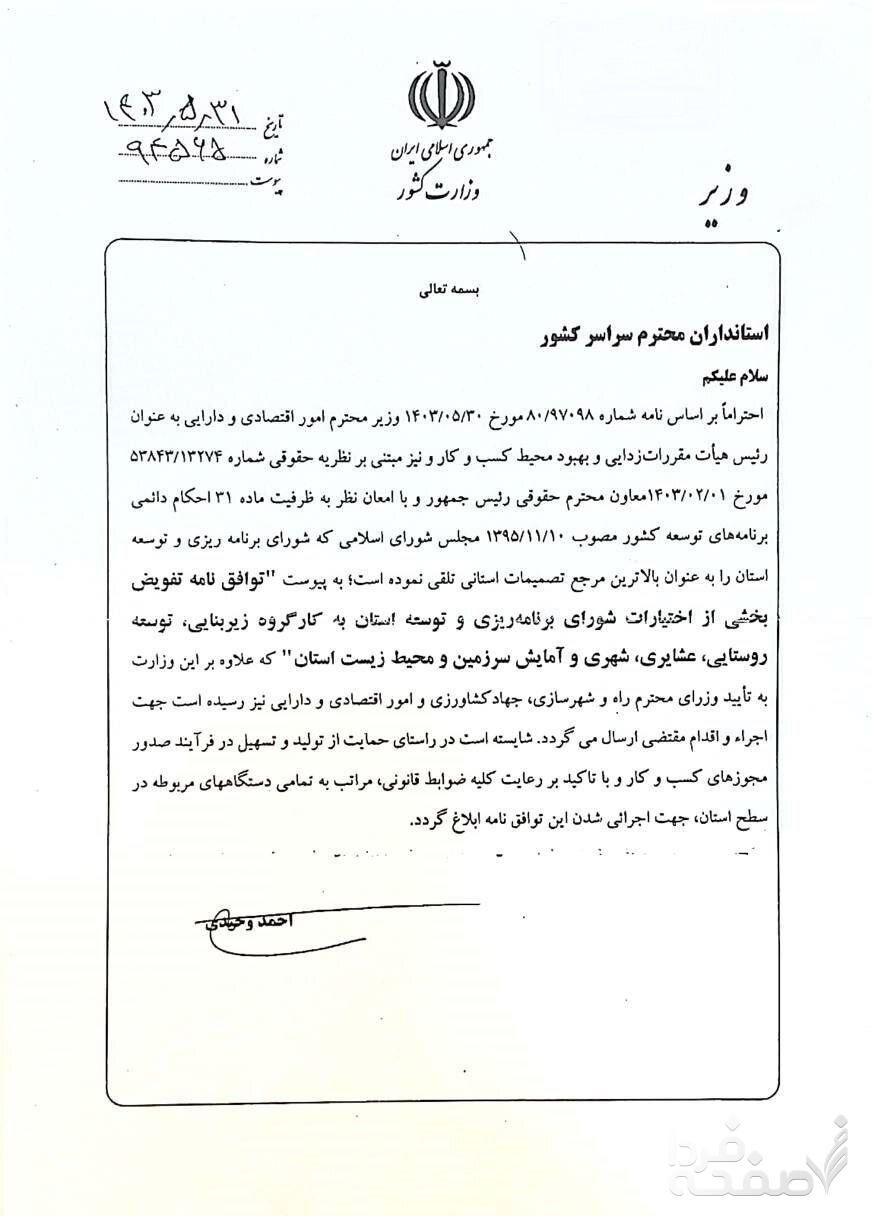 جمهوری اسلامی ایران
وزارت کشور
وزیر
تاریخ ۱۴۰۳/۵/۳۱
شماره ۹۴۵۶۵
پیوست
بسمه تعالی
استانداران محترم سراسر کشور
سلام علیکم
احتراماً بر اساس نامه شماره ۸۰/۹۷۰۹۸ مورخ ۱۴۰۳/۰۵/۳۰ وزیر محترم امور اقتصادی و دارایی به عنوان
رئیس هیأت مقررات‌زدایی و بهبود محیط کسب و کار و نیز مبتنی بر نظریه حقوقی شماره ۵۳۸۴۳/۱۳۲۷۴
مورخ ۱۴۰۳/۰۲/۰۱معاون محترم حقوقی رئیس جمهور و با امعان نظر به ظرفیت ماده ۳۱ احکام دائمی
برنامه‌های توسعه کشور مصوب ۱۳۹۵/۱۱/۱۰ مجلس شورای اسلامی که شورای برنامه ریزی و توسعه
استان را به عنوان بالاترین مرجع تصمیمات استانی تلقی نموده است؛ به پیوست "توافق نامه تفویض
بخشی از اختیارات شورای برنامه‌ریزی و توسعه استان به کارگروه زیربنایی، توسعه
روستایی، عشایری، شهری و آمایش سرزمین و محیط زیست استان" که علاوه بر این وزارت
به تأیید وزرای محترم راه و شهرسازی، جهادکشاورزی و امور اقتصادی و دارایی نیز رسیده است جهت
اجراء و اقدام مقتضی ارسال می گردد. شایسته است در راستای حمایت از تولید و تسهیل در فرآیند صدور
مجوزهای کسب و کار و با تاکید بر رعایت کلیه ضوابط قانونی، مراتب به تمامی دستگاههای مربوطه در
سطح استان، جهت اجرائی شدن این توافق نامه ابلاغ گردد.
احمد وحیدی
فردا
صفحه